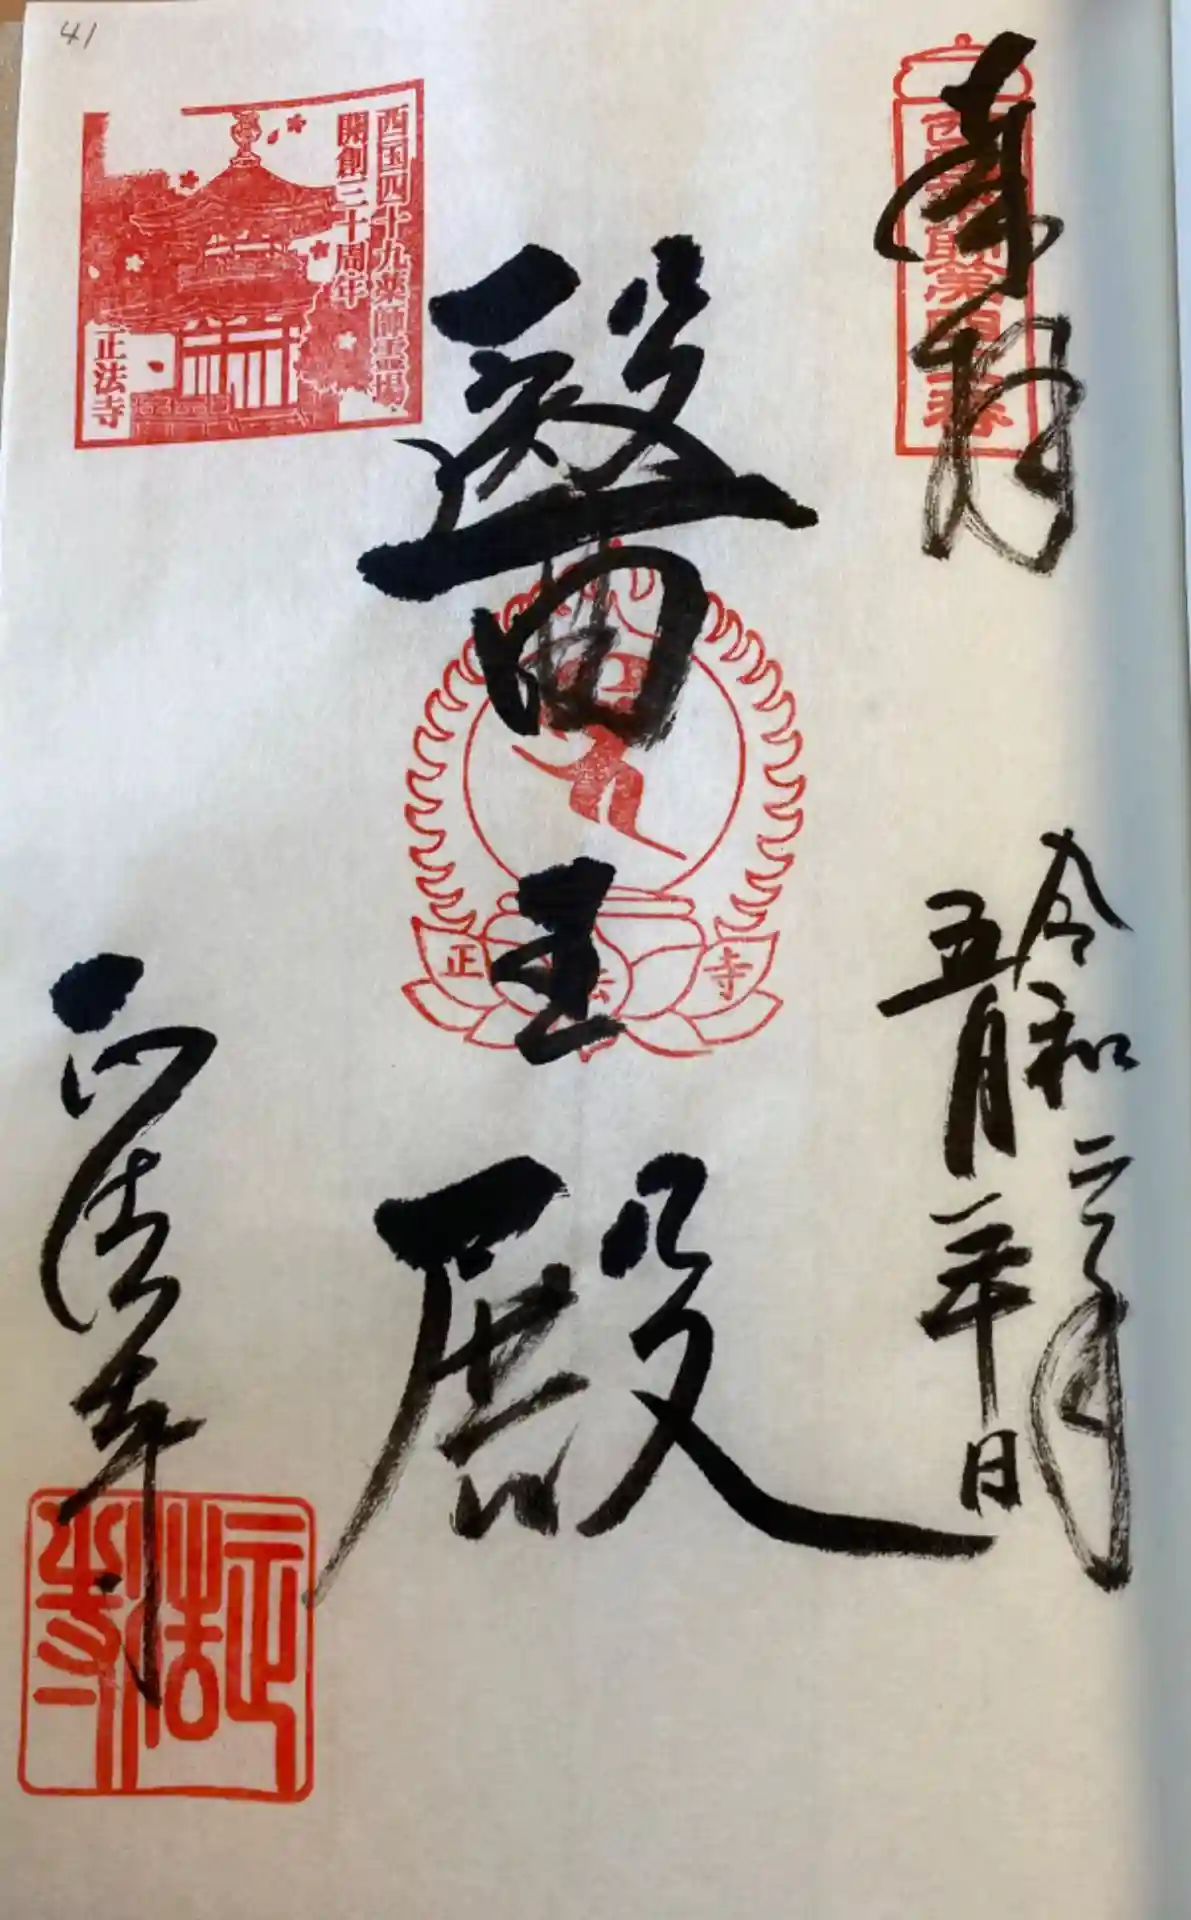 奉拝
令和二年
五月
日
醫王殿
正法寺
正法寺
西国四十九薬師霊場
開創三十周年
正法寺
正法寺
41